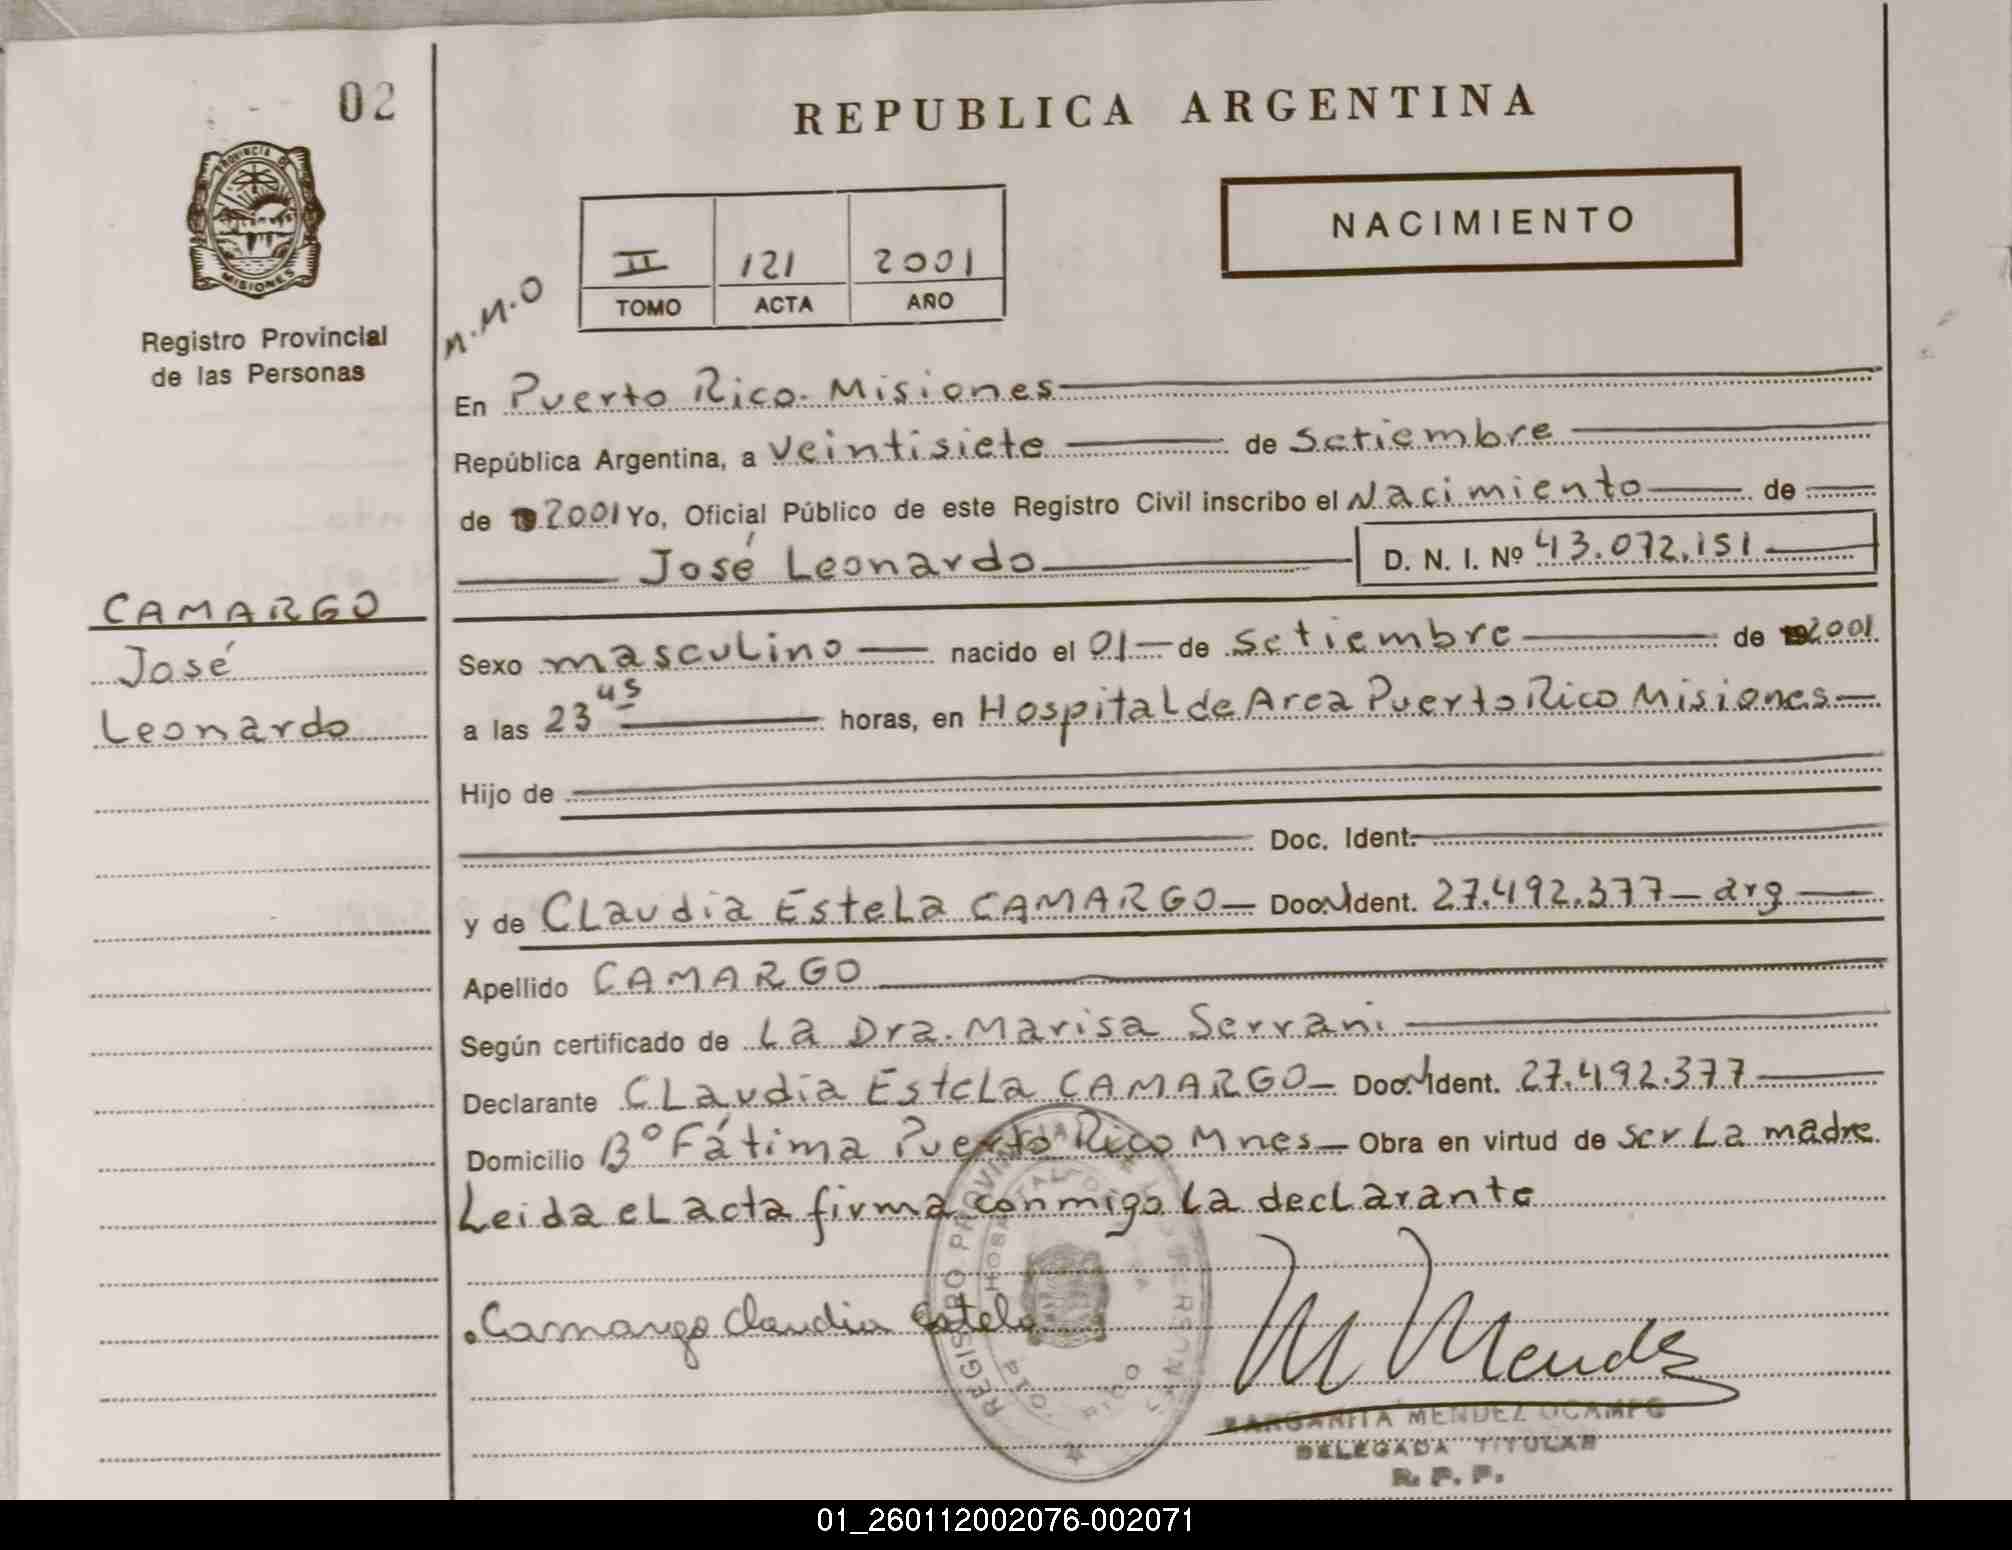 02
REPUBLICA ARGENTINA
PROVINCIA DE
MISIONES
Registro Provincial
de las Personas
M.M.O
II 121 2001
TOMO ACTA AÑO
NACIMIENTO
En Puerto Rico. Misiones
República Argentina, a veintisiete de setiembre
de 2001 Yo, Oficial Público de este Registro Civil inscribo el Nacimiento de
José Leonardo D. N. I. Nº 43.072.151
CAMARGO
José
Leonardo
Sexo masculino nacido el 01 de setiembre de 2001
a las 23 45 horas, en Hospital de Area Puerto Rico Misiones
Hijo de
Doc. Ident.
y de Claudia Estela CAMARGO Doc. Ident. 27.492.377 arg
Apellido CAMARGO
Según certificado de La Dra. Marisa Serrani
Declarante Claudia Estela CAMARGO Doc. Ident. 27.492.377
Domicilio Bº Fátima Puerto Rico Mnes Obra en virtud de ser La madre
Leida el acta firma conmigo la declarante
Camargo Claudia Estela
M Mendez
MARGARITA MENDEZ OCAMPO
DELEGADA TITULAR
R. P. P.
01_260112002076-002071